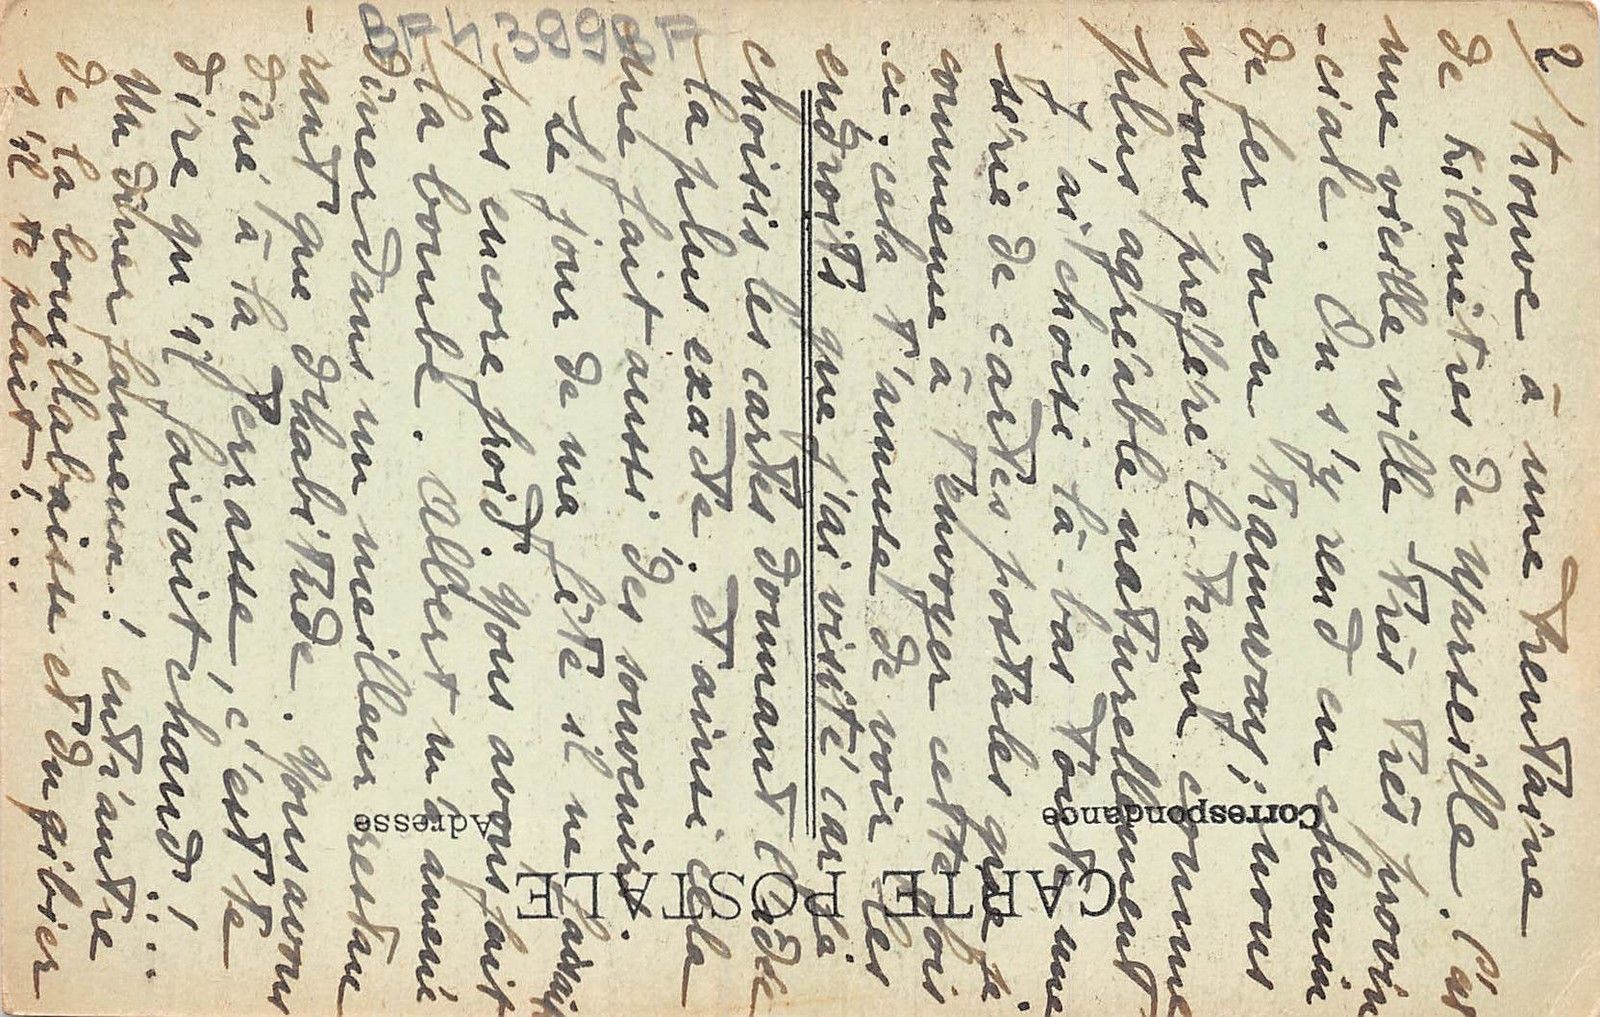 2/ trouve à une trentaine
de kilomètres de Marseille. C'est
une vieille ville très très provin
-ciale. On s'y rend en chemin
de fer ou en tramway; nous
avons préféré le tram comme
plus agréable naturellement
J'ai choisi là-bas toute une
série de cartes postales que je
commence à t'envoyer cette fois
-ci. cela t'amuse de voir les
endroits que j'ai visité car je
choisis les cartes donnant l'idée
la plus exacte. et ainsi cela
me fait aussi des souvenirs.
Le jour de ma fête il ne faisait
pas encore froid. Nous avons fait
la bombe. Albert m'a amené
dîner dans un meilleur restau
-rant que d'habitude. Nous avons
dîné à la terrasse, c'est te
dire qu'il faisait chaud!
Un dîner fameux! entr'autre
de la bouillabaisse et du gibier
s'il te plait!...
CARTE POSTALE
Correspondance
Adresse